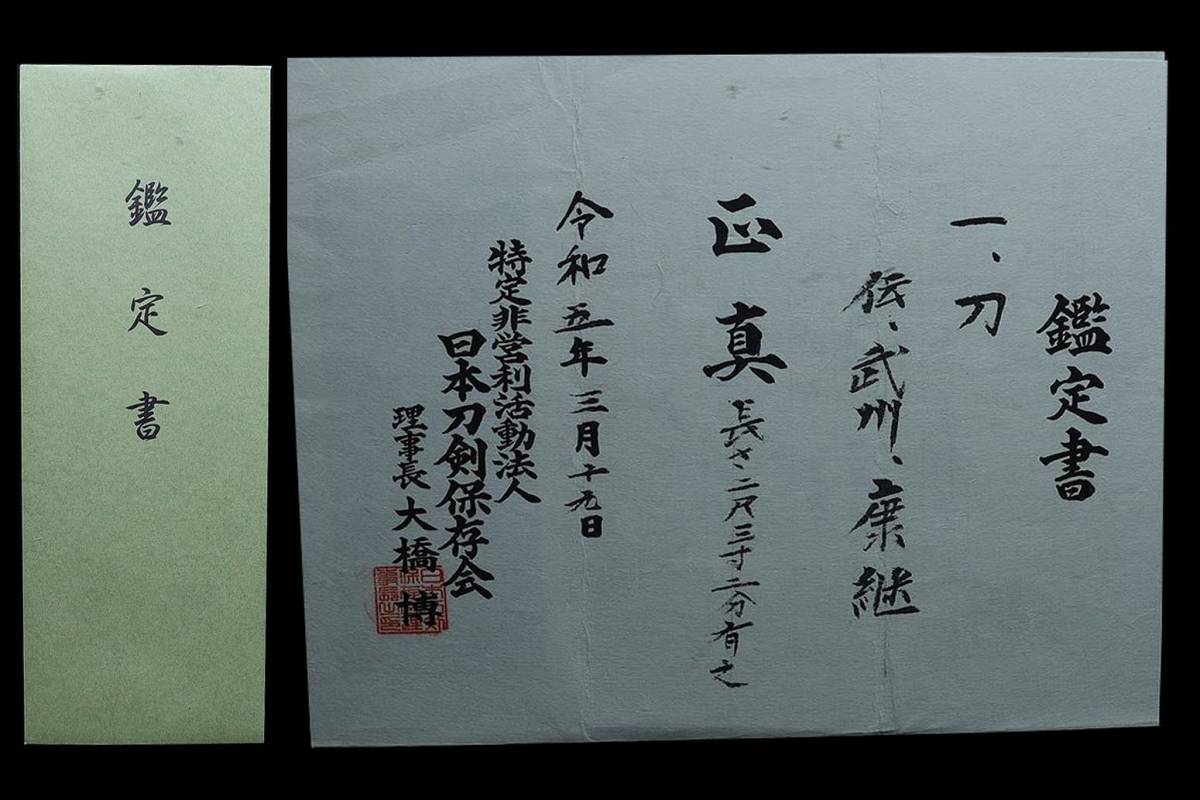 鑑定書
鑑定書
一、刀
伝、武州、康継
正真
長さ、二尺三寸二分有之
令和五年三月十九日
特定非営利活動法人
日本刀剣保存会
理事長 大橋 博